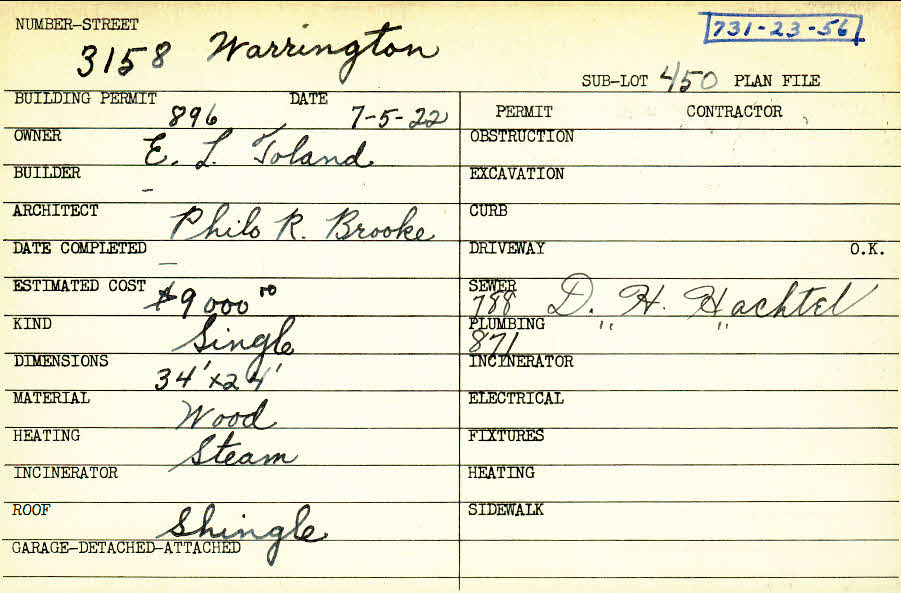 NUMBER-STREET
3158 Warrington
731-23-56
SUB-LOT 450 PLAN FILE
BUILDING PERMIT 896 DATE 7-5-22
OWNER E. L. Toland
BUILDER -
ARCHITECT Philo R. Brooke
DATE COMPLETED -
ESTIMATED COST $9000 00
KIND Single
DIMENSIONS 34'x24'
MATERIAL Wood
HEATING Steam
INCINERATOR
ROOF Shingle
GARAGE-DETACHED-ATTACHED
PERMIT CONTRACTOR
OBSTRUCTION
EXCAVATION
CURB
DRIVEWAY O.K.
SEWER
788 D. H. Hachtel
PLUMBING " "
871
INCINERATOR
ELECTRICAL
FIXTURES
HEATING
SIDEWALK